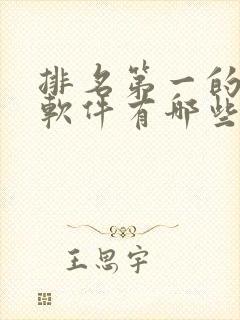 排名第一的
軟件有哪些
王思宇